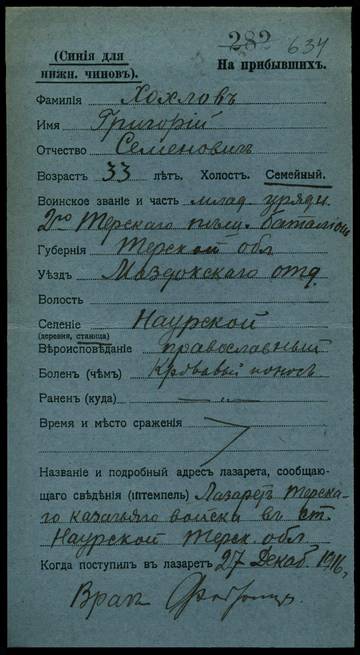 (Синія для нижн. чиновъ).
282 634
На прибывшихъ.
Фамилія Хохловъ
Имя Григорій
Отчество Семеновичъ
Возрастъ 33 лѣтъ. Холост. Семейный.
Воинское званіе и часть млад. урядн.
2го Терскаго пласт. баталіона
Губернія Терской обл
Уѣздъ Моздокскаго отд.
Волость
Селеніе Наурской
(деревня, станица)
Вѣроисповѣданіе православный
Боленъ (чѣмъ) Кровавый поносъ
Раненъ (куда) — „ —
Время и мѣсто сраженія
Названіе и подробный адресъ лазарета, сообщаю-
щаго свѣдѣнія (штемпель) Лазаретъ Терска-
го казачьяго войска въ ст.
Наурской Терск. обл
Когда поступилъ въ лазаретъ 27 Декаб. 1916 г.
Врачъ